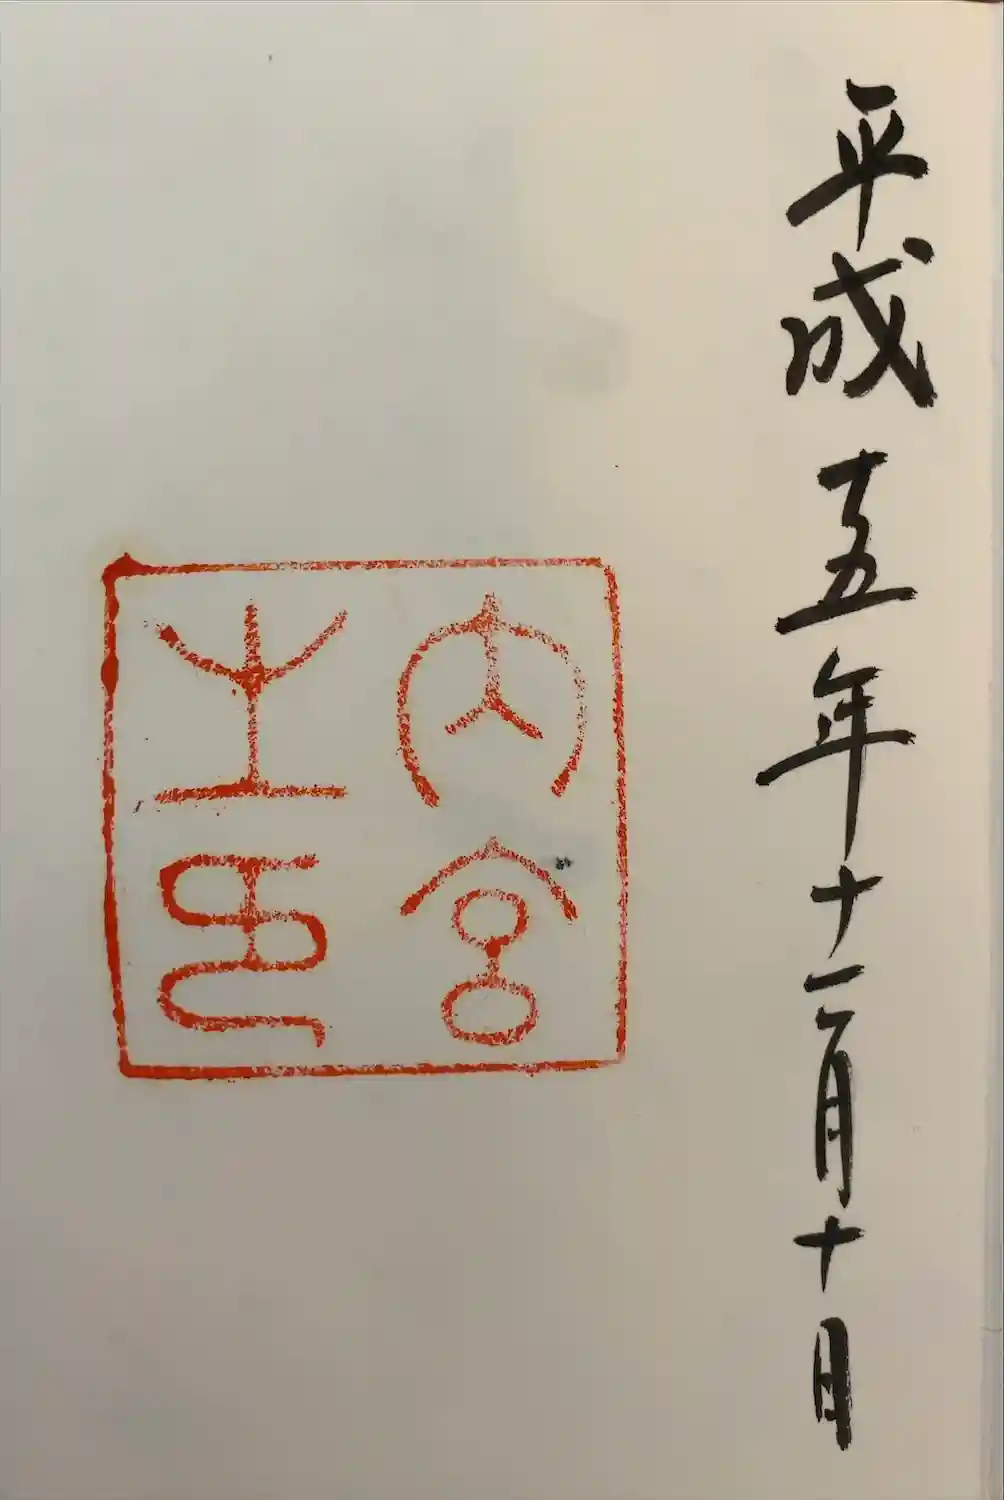 平成五年十二月十日
内宮
之印